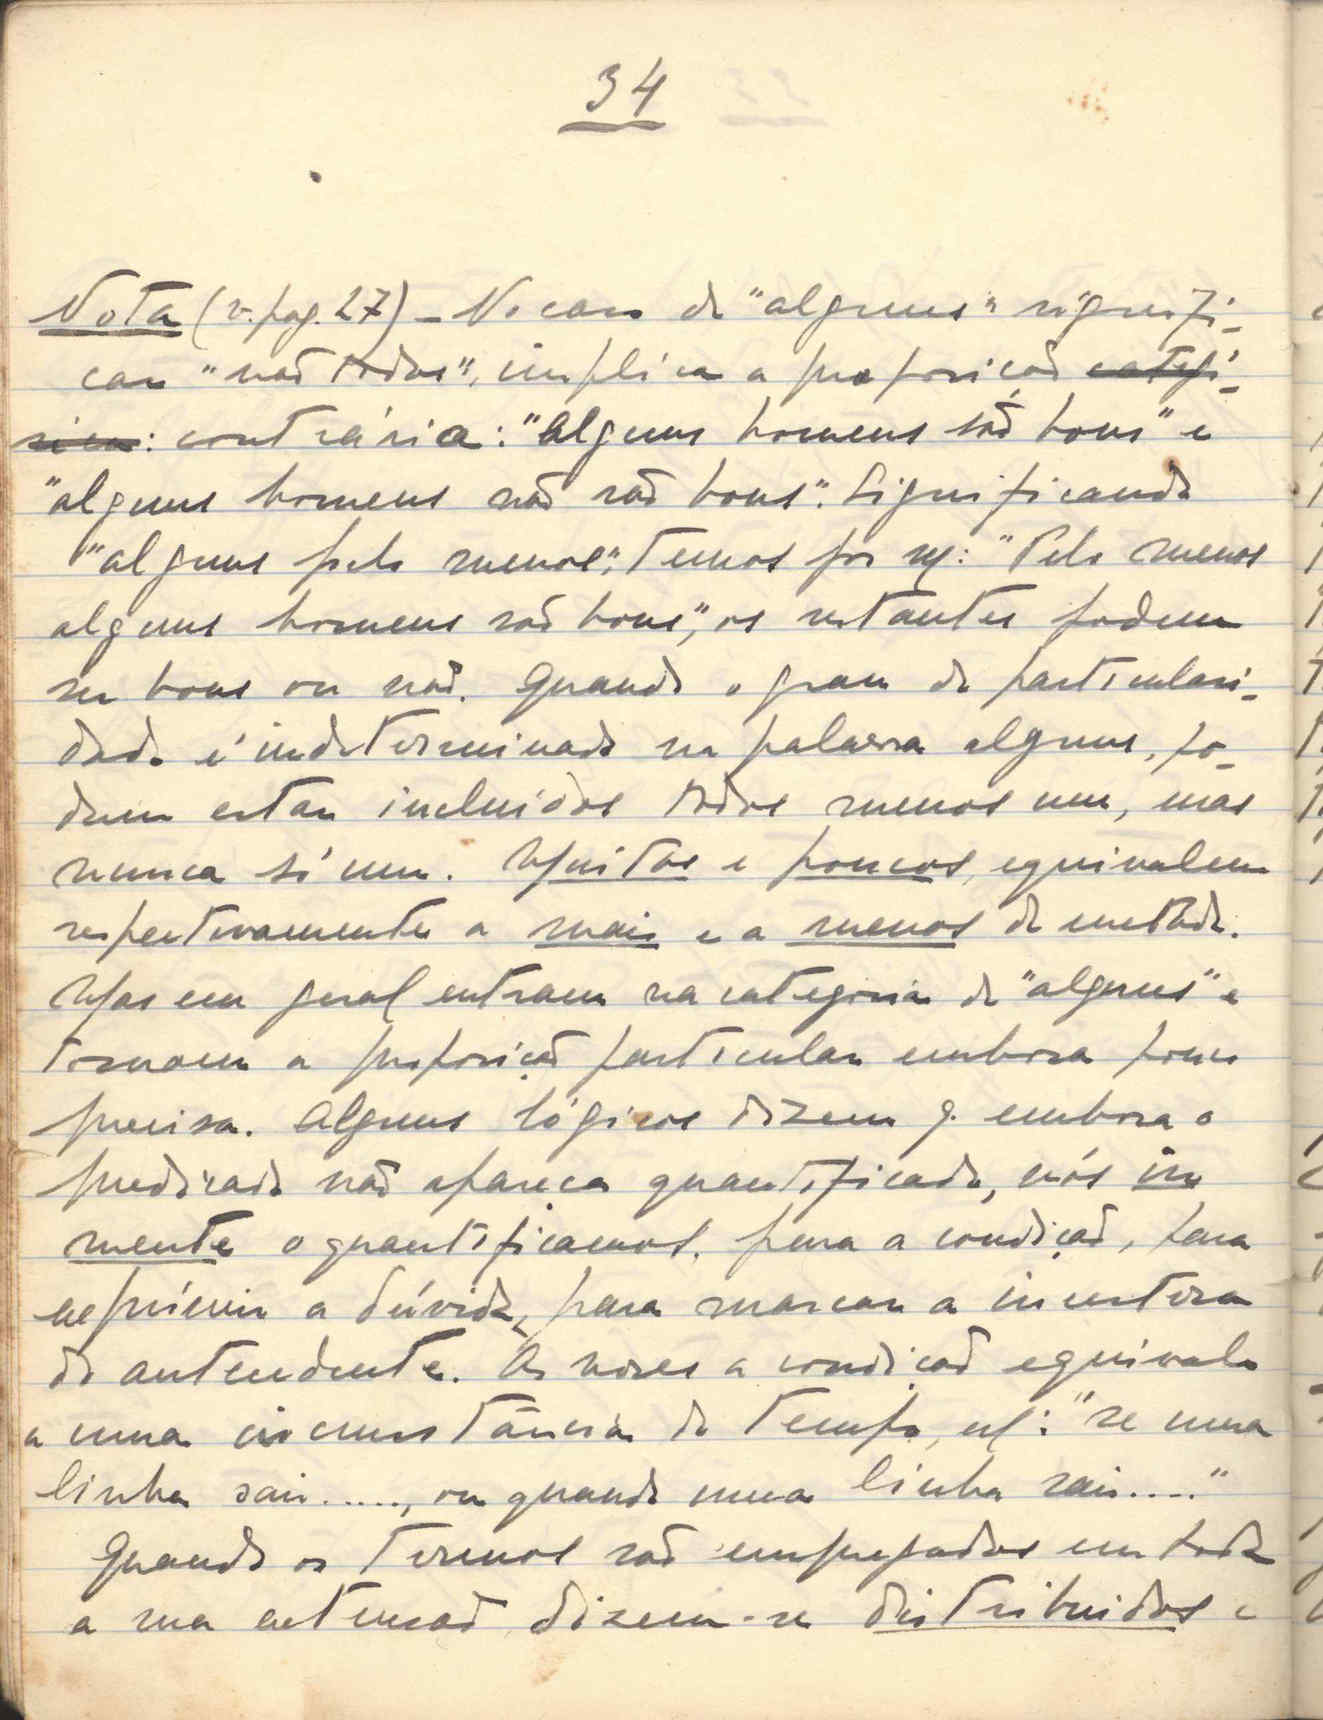 34
Nota (v. pag. 27) - No caso de "alguns" signifi-
car "não todos", implica a proposição categó-
rica: contrária: "Alguns homens são bons" e
"alguns homens não são bons". Significando
"alguns pelo menos", temos por ex: "Pelo menos
alguns homens são bons", os restantes podem
ser bons ou não. Quando o grau de particulari-
dade é indeterminado na palavra alguns, po-
dem estar incluidos todos menos um, mas
nunca só um. Muitos e poucos, equivalem
respectivamente a mais e a menos de metade.
Mas em geral entram na categoria de "alguns" e
tornam a proposição particular embora pouco
precisa. Alguns lógicos dizem q. embora o
predicado não apareça quantificado, nós in
mente o quantificamos. para a condição, para
exprimir a dúvida, para marcar a incerteza
do antecedente. Às vezes a condição equivale
a uma circunstância de tempo, ex: "se uma
linha cai....., ou quando uma linha cai...."
Quando os termos são empregados em toda
a sua extensão dizem-se distribuidos e